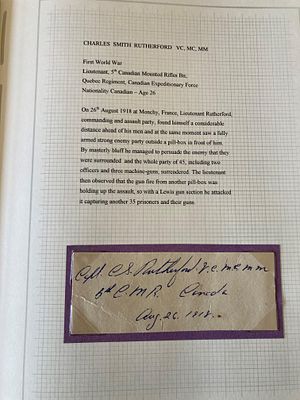 CHARLES SMITH RUTHERFORD VC, MC, MM
First World War
Lieutenant, 5th Canadian Mounted Rifles Bn,
Quebec Regiment, Canadian Expeditionary Force
Nationality Canadian – Age 26
On 26th August 1918 at Monchy, France, Lieutenant Rutherford,
commanding and assault party, found himself a considerable
distance ahead of his men and at the same moment saw a fully
armed strong enemy party outside a pill-box in front of him.
By masterly bluff he managed to persuade the enemy that they
were surrounded and the whole party of 45, including two
officers and three machine-guns, surrendered. The lieutenant
then observed that the gun fire from another pill-box was
holding up the assault, so with a Lewis gun section he attacked
it capturing another 35 prisoners and their guns.
Capt. C.S. Rutherford V.C. M.C. M.M
5th C.M.R. Canada
Aug. 26. 1918.